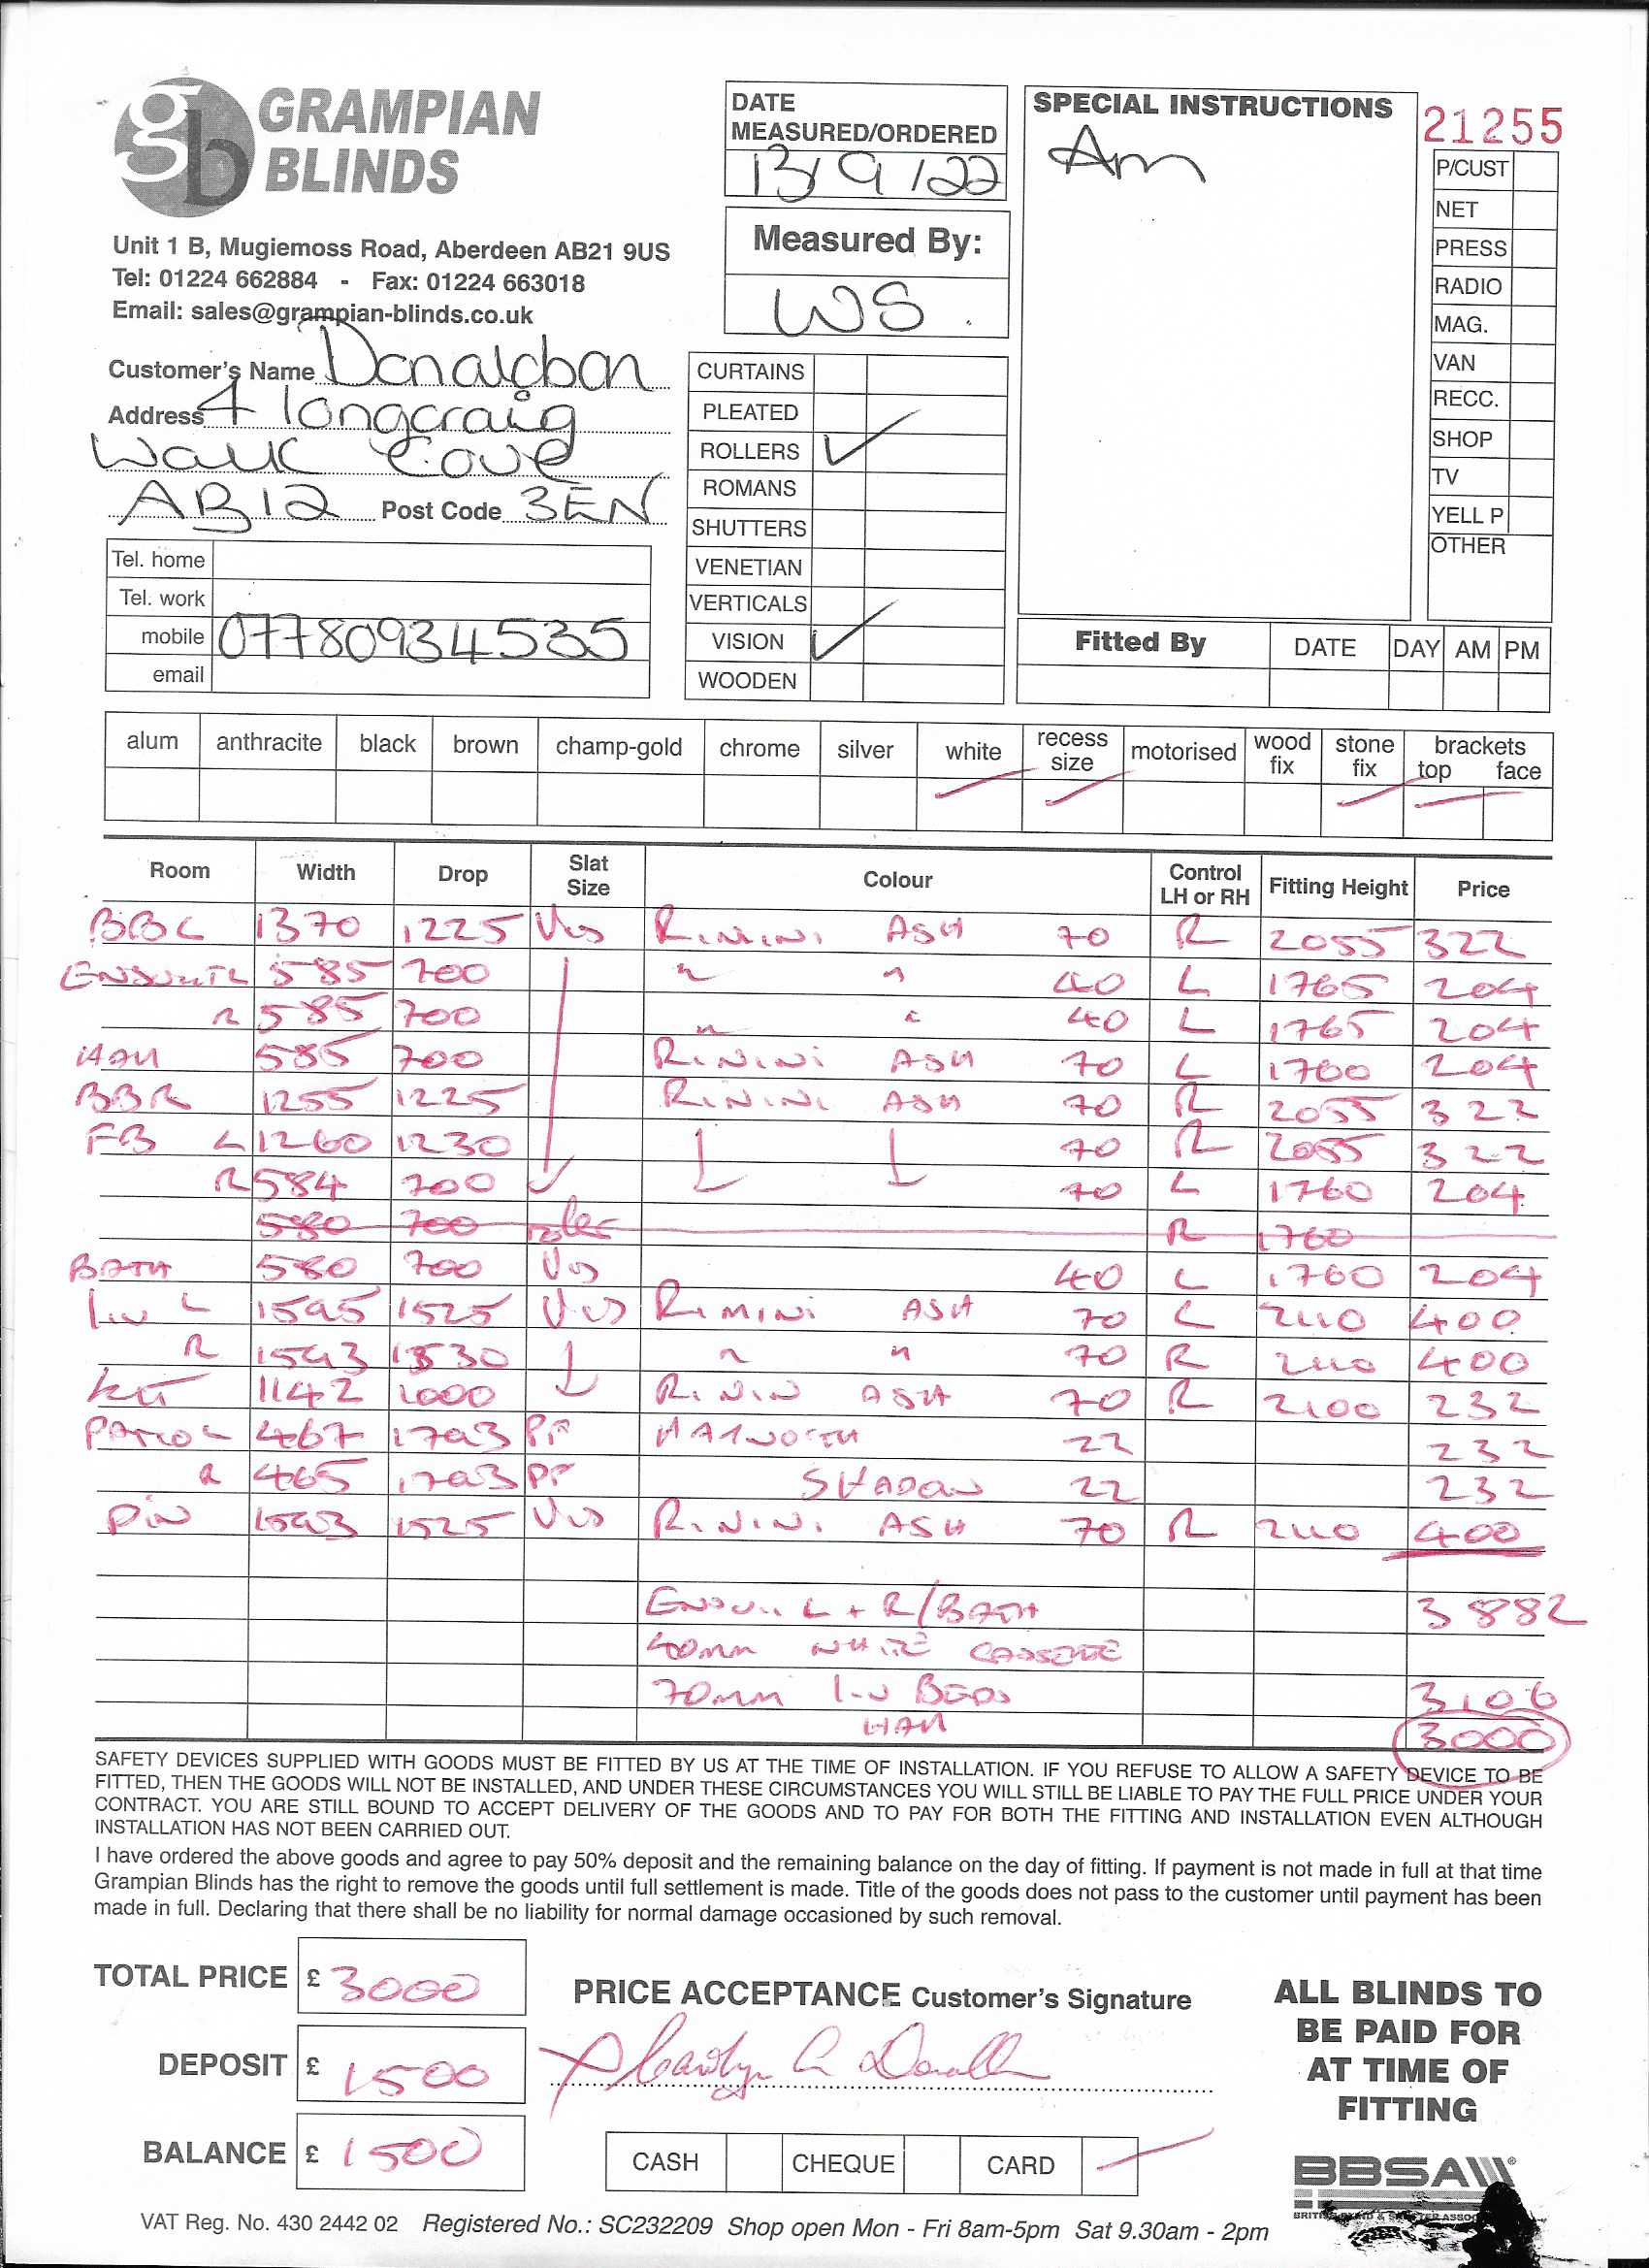 gb GRAMPIAN BLINDS
Unit 1 B, Mugiemoss Road, Aberdeen AB21 9US
Tel: 01224 662884 - Fax: 01224 663018
Email: sales@grampian-blinds.co.uk
DATE MEASURED/ORDERED
13/9/22
Measured By:
WS.
SPECIAL INSTRUCTIONS
Am
21255
P/CUST
NET
PRESS
RADIO
MAG.
VAN
RECC.
SHOP
TV
YELL P
OTHER
Customer's Name Donaldson
Address 4 longcraig
Walk Cove
AB12 Post Code 3EN
Tel. home
Tel. work
mobile 07780934535
email
CURTAINS
PLEATED
ROLLERS ✓
ROMANS
SHUTTERS
VENETIAN
VERTICALS
VISION ✓
WOODEN
Fitted By DATE DAY AM PM
alum anthracite black brown champ-gold chrome silver white recess size motorised wood fix stone fix brackets top face
Room Width Drop Slat Size Colour Control LH or RH Fitting Height Price
BBL 1370 1225 Vis RIMINI ASH 70 R 2055 322
ENSUITE 585 700 " " 40 L 1765 204
R 585 700 " " 40 L 1765 204
HALL 585 700 RIMINI ASH 70 L 1760 204
BBR 1255 1225 RIMINI ASH 70 R 2055 322
FB L 1260 1230 70 R 2055 322
R 584 700 70 L 1760 204
580 700 R 1760
BATH 580 700 Vis 40 L 1760 204
Liv L 1595 1525 Vis RIMINI ASH 70 L 2110 400
R 1593 1530 " " 70 R 2110 400
Kit 1142 1000 RIMINI ASH 70 R 2100 232
PATIO L 467 1793 PF HAYWORTH 22 232
R 465 1793 PF SHADOW 22 232
Din 1593 1525 Vis RIMINI ASH 70 R 2110 400
ENSUI.. L + R/BATH 3882
40mm WHITE CASSETTE
70mm Liv BEDS 3106
HALL 3000
SAFETY DEVICES SUPPLIED WITH GOODS MUST BE FITTED BY US AT THE TIME OF INSTALLATION. IF YOU REFUSE TO ALLOW A SAFETY DEVICE TO BE
FITTED, THEN THE GOODS WILL NOT BE INSTALLED, AND UNDER THESE CIRCUMSTANCES YOU WILL STILL BE LIABLE TO PAY THE FULL PRICE UNDER YOUR
CONTRACT. YOU ARE STILL BOUND TO ACCEPT DELIVERY OF THE GOODS AND TO PAY FOR BOTH THE FITTING AND INSTALLATION EVEN ALTHOUGH
INSTALLATION HAS NOT BEEN CARRIED OUT.
I have ordered the above goods and agree to pay 50% deposit and the remaining balance on the day of fitting. If payment is not made in full at that time
Grampian Blinds has the right to remove the goods until full settlement is made. Title of the goods does not pass to the customer until payment has been
made in full. Declaring that there shall be no liability for normal damage occasioned by such removal.
TOTAL PRICE £ 3000
DEPOSIT £ 1500
BALANCE £ 1500
PRICE ACCEPTANCE Customer's Signature
CASH CHEQUE CARD
ALL BLINDS TO
BE PAID FOR
AT TIME OF
FITTING
BBSA
VAT Reg. No. 430 2442 02 Registered No.: SC232209 Shop open Mon - Fri 8am-5pm Sat 9.30am - 2pm